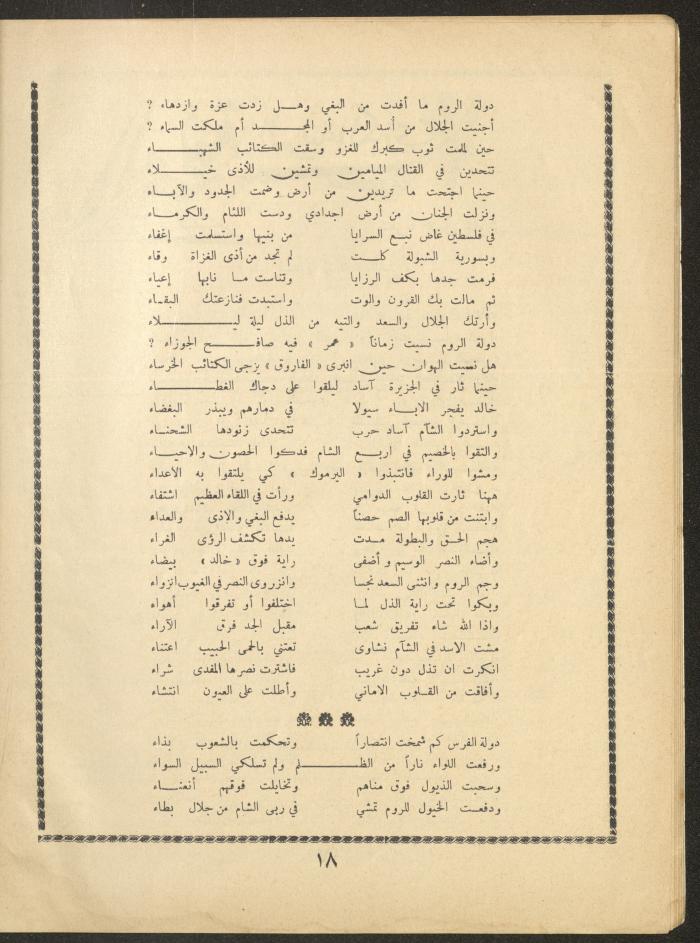 دولة الروم ما أفدت من البغي وهل زدت عزة وازدهاء ؟
أجنيت الجلال من أسد العرب أو المجد أم ملكت السماء ؟
حين لملمت ثوب كبرك للغزو وسقت الكتائب الشهباء
تتحدين في القتال الميامين وتمشين للأذى خيلاء
حينما اجتحت ما تريدين من أرض وضمت الجدود والآباء
ونزلت الجنان من أرض اجدادي ودست اللئام والكرماء
في فلسطين غاض نبع السرايا من بنيها واستسلمت إغفاء
وبسورية الشبولة كلت لم تجد من أذى الغزاة وقاء
فرمت جدها بكف الرزايا وتناست ما نابها إعياء
ثم مالت بك القرون والوت واستبدت فنازعتك البقاء
وأرتك الجلال والسعد والتيه من الذل ليلة ليلاء
دولة الروم نسيت زماناً « عمر » فيه صافح الجوزاء ؟
هل نسيت الهوان حين انبرى « الفاروق » يزجى الكتائب الخرساء
حينما ثار في الجزيرة آساد ليلقوا على دجاك الغطاء
خالد يفجر الاباء سيولا في دمارهم ويبذر البغضاء
واستردوا الشآم آساد حرب تتحدى زنودها الشحناء
والتقوا بالخصيم في اربع الشام فدكوا الحصون والاحياء
ومشوا للوراء فانتبذوا « اليرموك » كي يلتقوا به الأعداء
ههنا ثارت القلوب الدوامي ورأت في اللقاء العظيم اشتفاء
وابتنت من قلوبها الصم حصناً يدفع البغي والاذى والعداء
هجم الحق والبطولة مدت يدها تكشف الرؤى الغراء
وأضاء النصر الوسيم وأضفى راية فوق « خالد » بيضاء
وجم الروم وانثنى السعد نجسا وانزوى النصر في الغيوب انزواء
وبكوا تحت راية الذل لما اختلفوا أو تفرقوا أهواء
واذا الله شاء تفريق شعب مقبل الجد فرق الآراء
مشت الاسد في الشآم نشاوى تعتني بالحمى الحبيب اعتناء
انكرت ان تذل دون غريب فاشترت نصرها المفدى شراء
وأفاقت من القلوب الاماني وأطلت على العيون انتشاء
دولة الفرس كم شمخت انتصاراً وتحكمت بالشعوب بذاء
ورفعت اللواء ناراً من الظلم ولم تسلكي السبيل السواء
وسحبت الذيول فوق مناهم وتخايلت فوقهم أنغناء
ودفعت الخيول للروم تمشي في ربى الشام من جلال بطاء
١٨